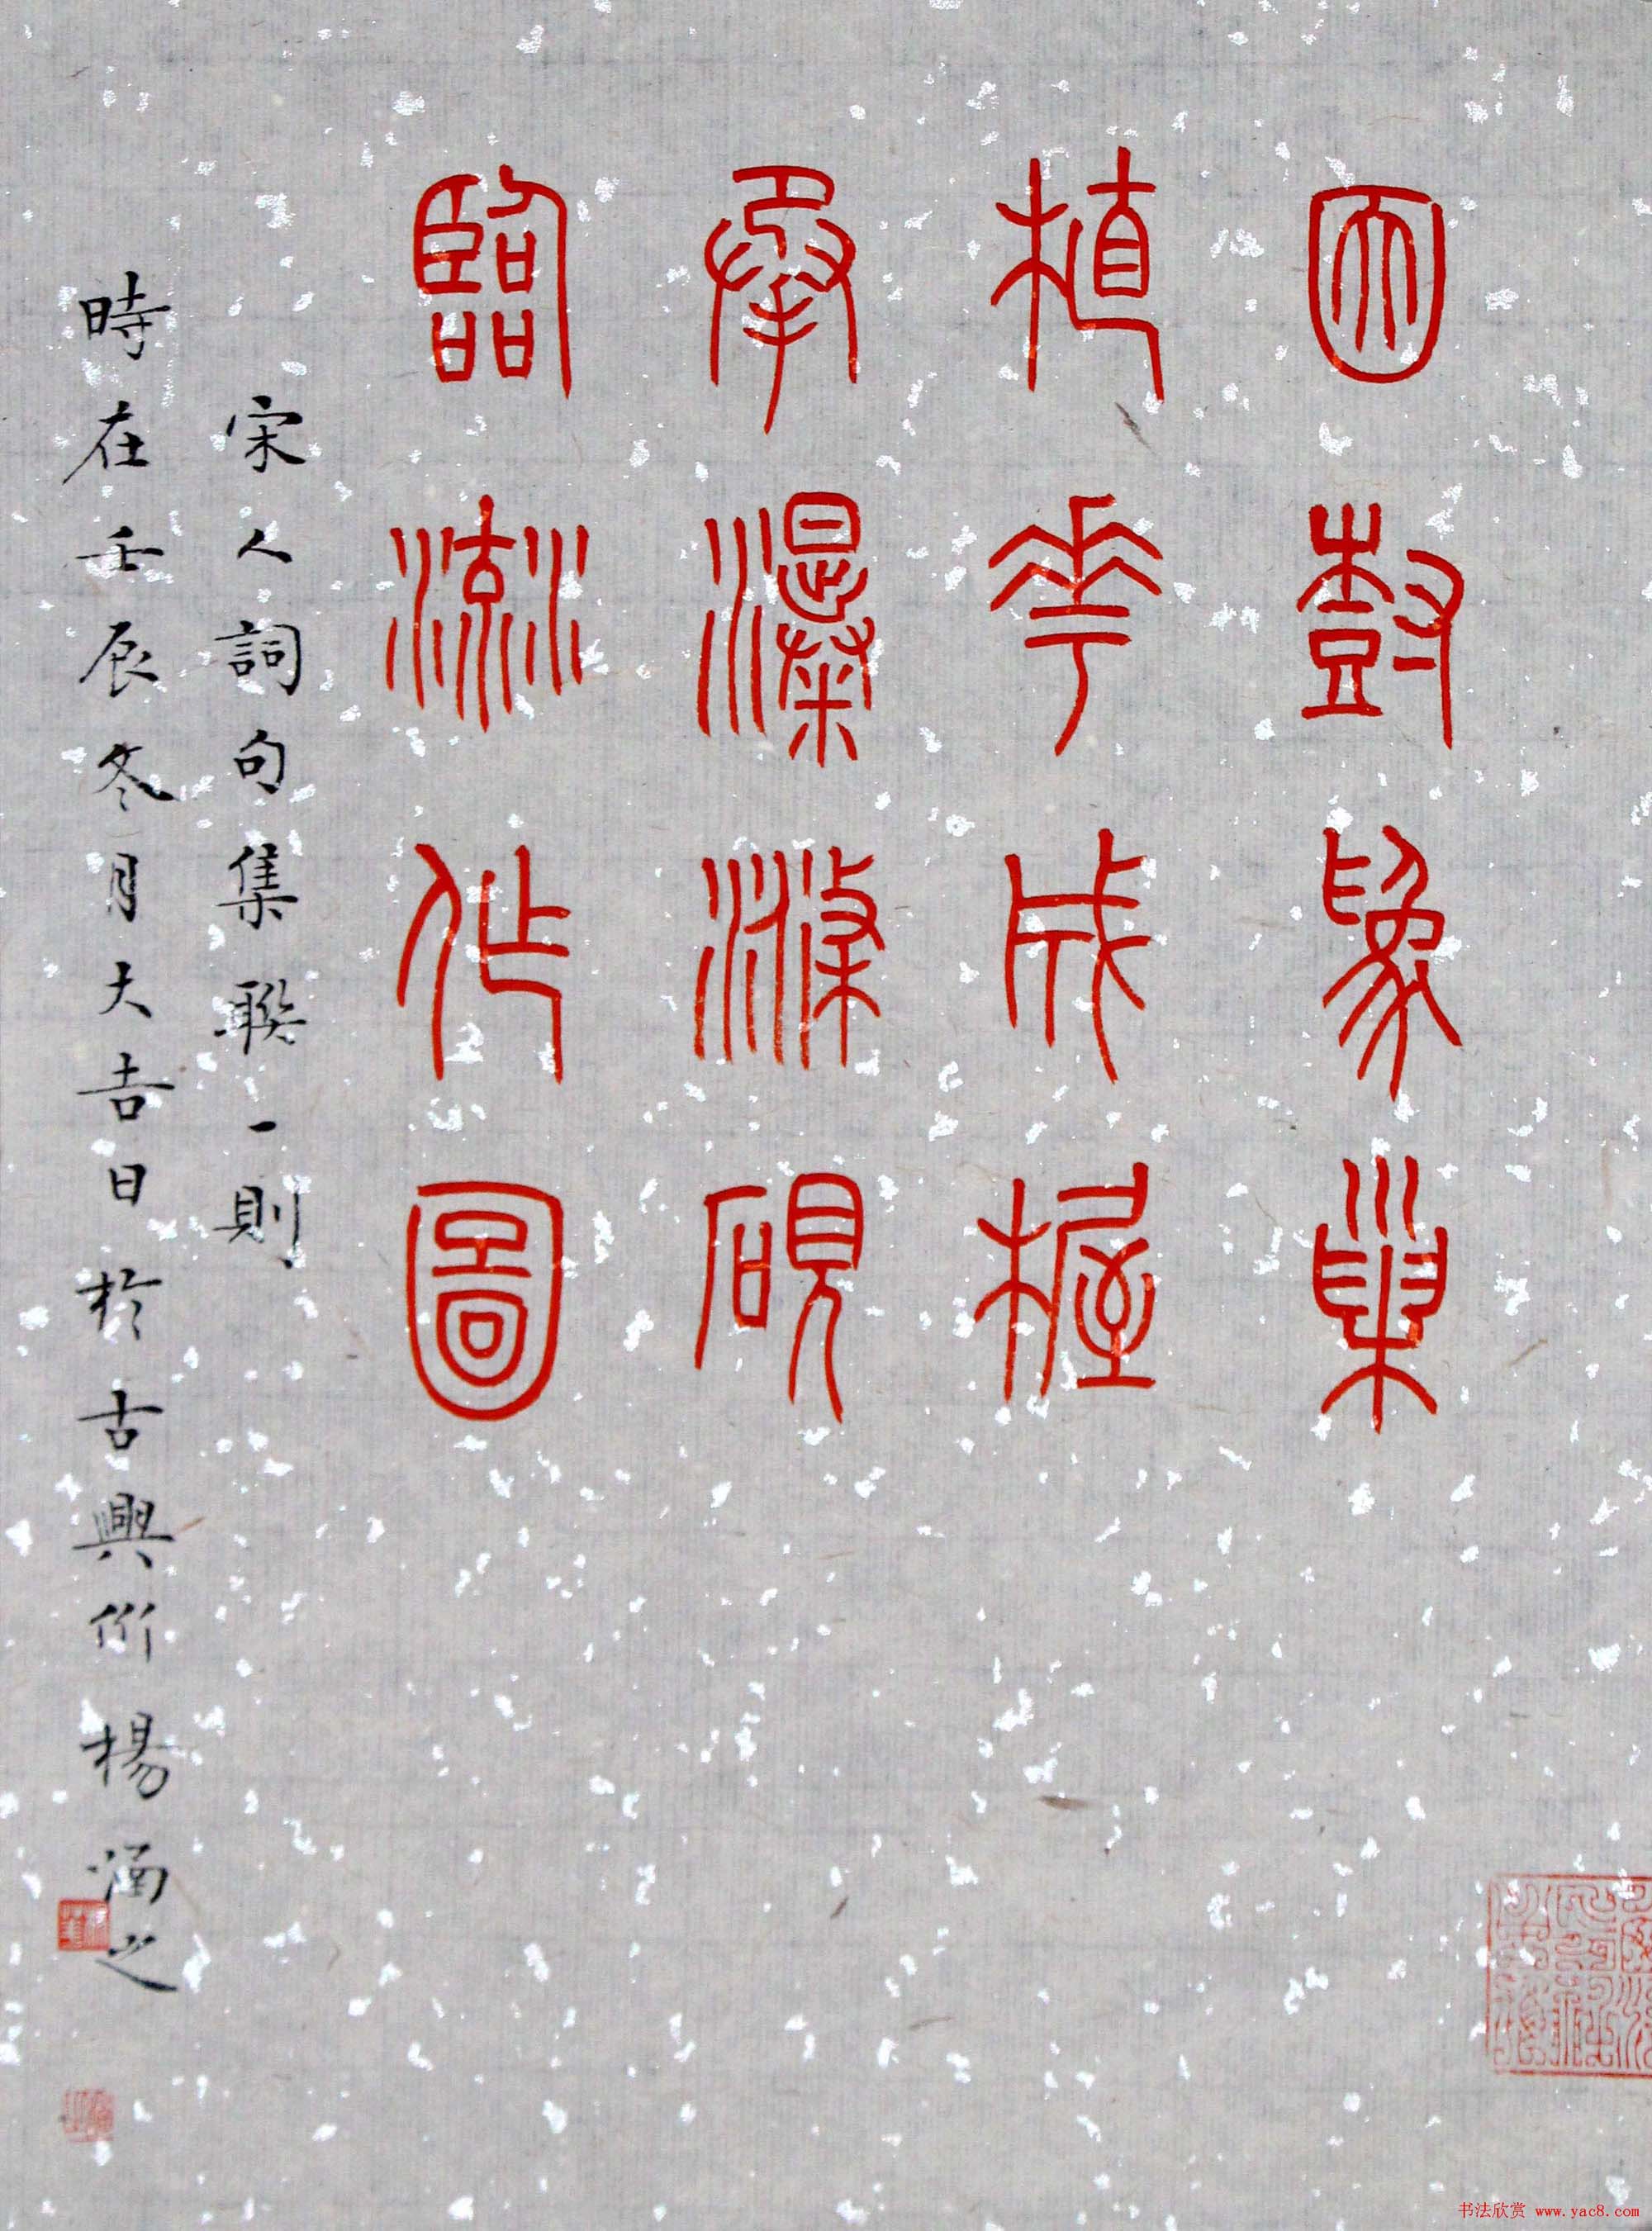 因樹爲巢
植花成楃
承瀑滌硯
臨流作圖
宋人詞句集聯一則
時在壬辰冬月大吉日於古興州楊涵之
书法欣赏 www.yac8.com